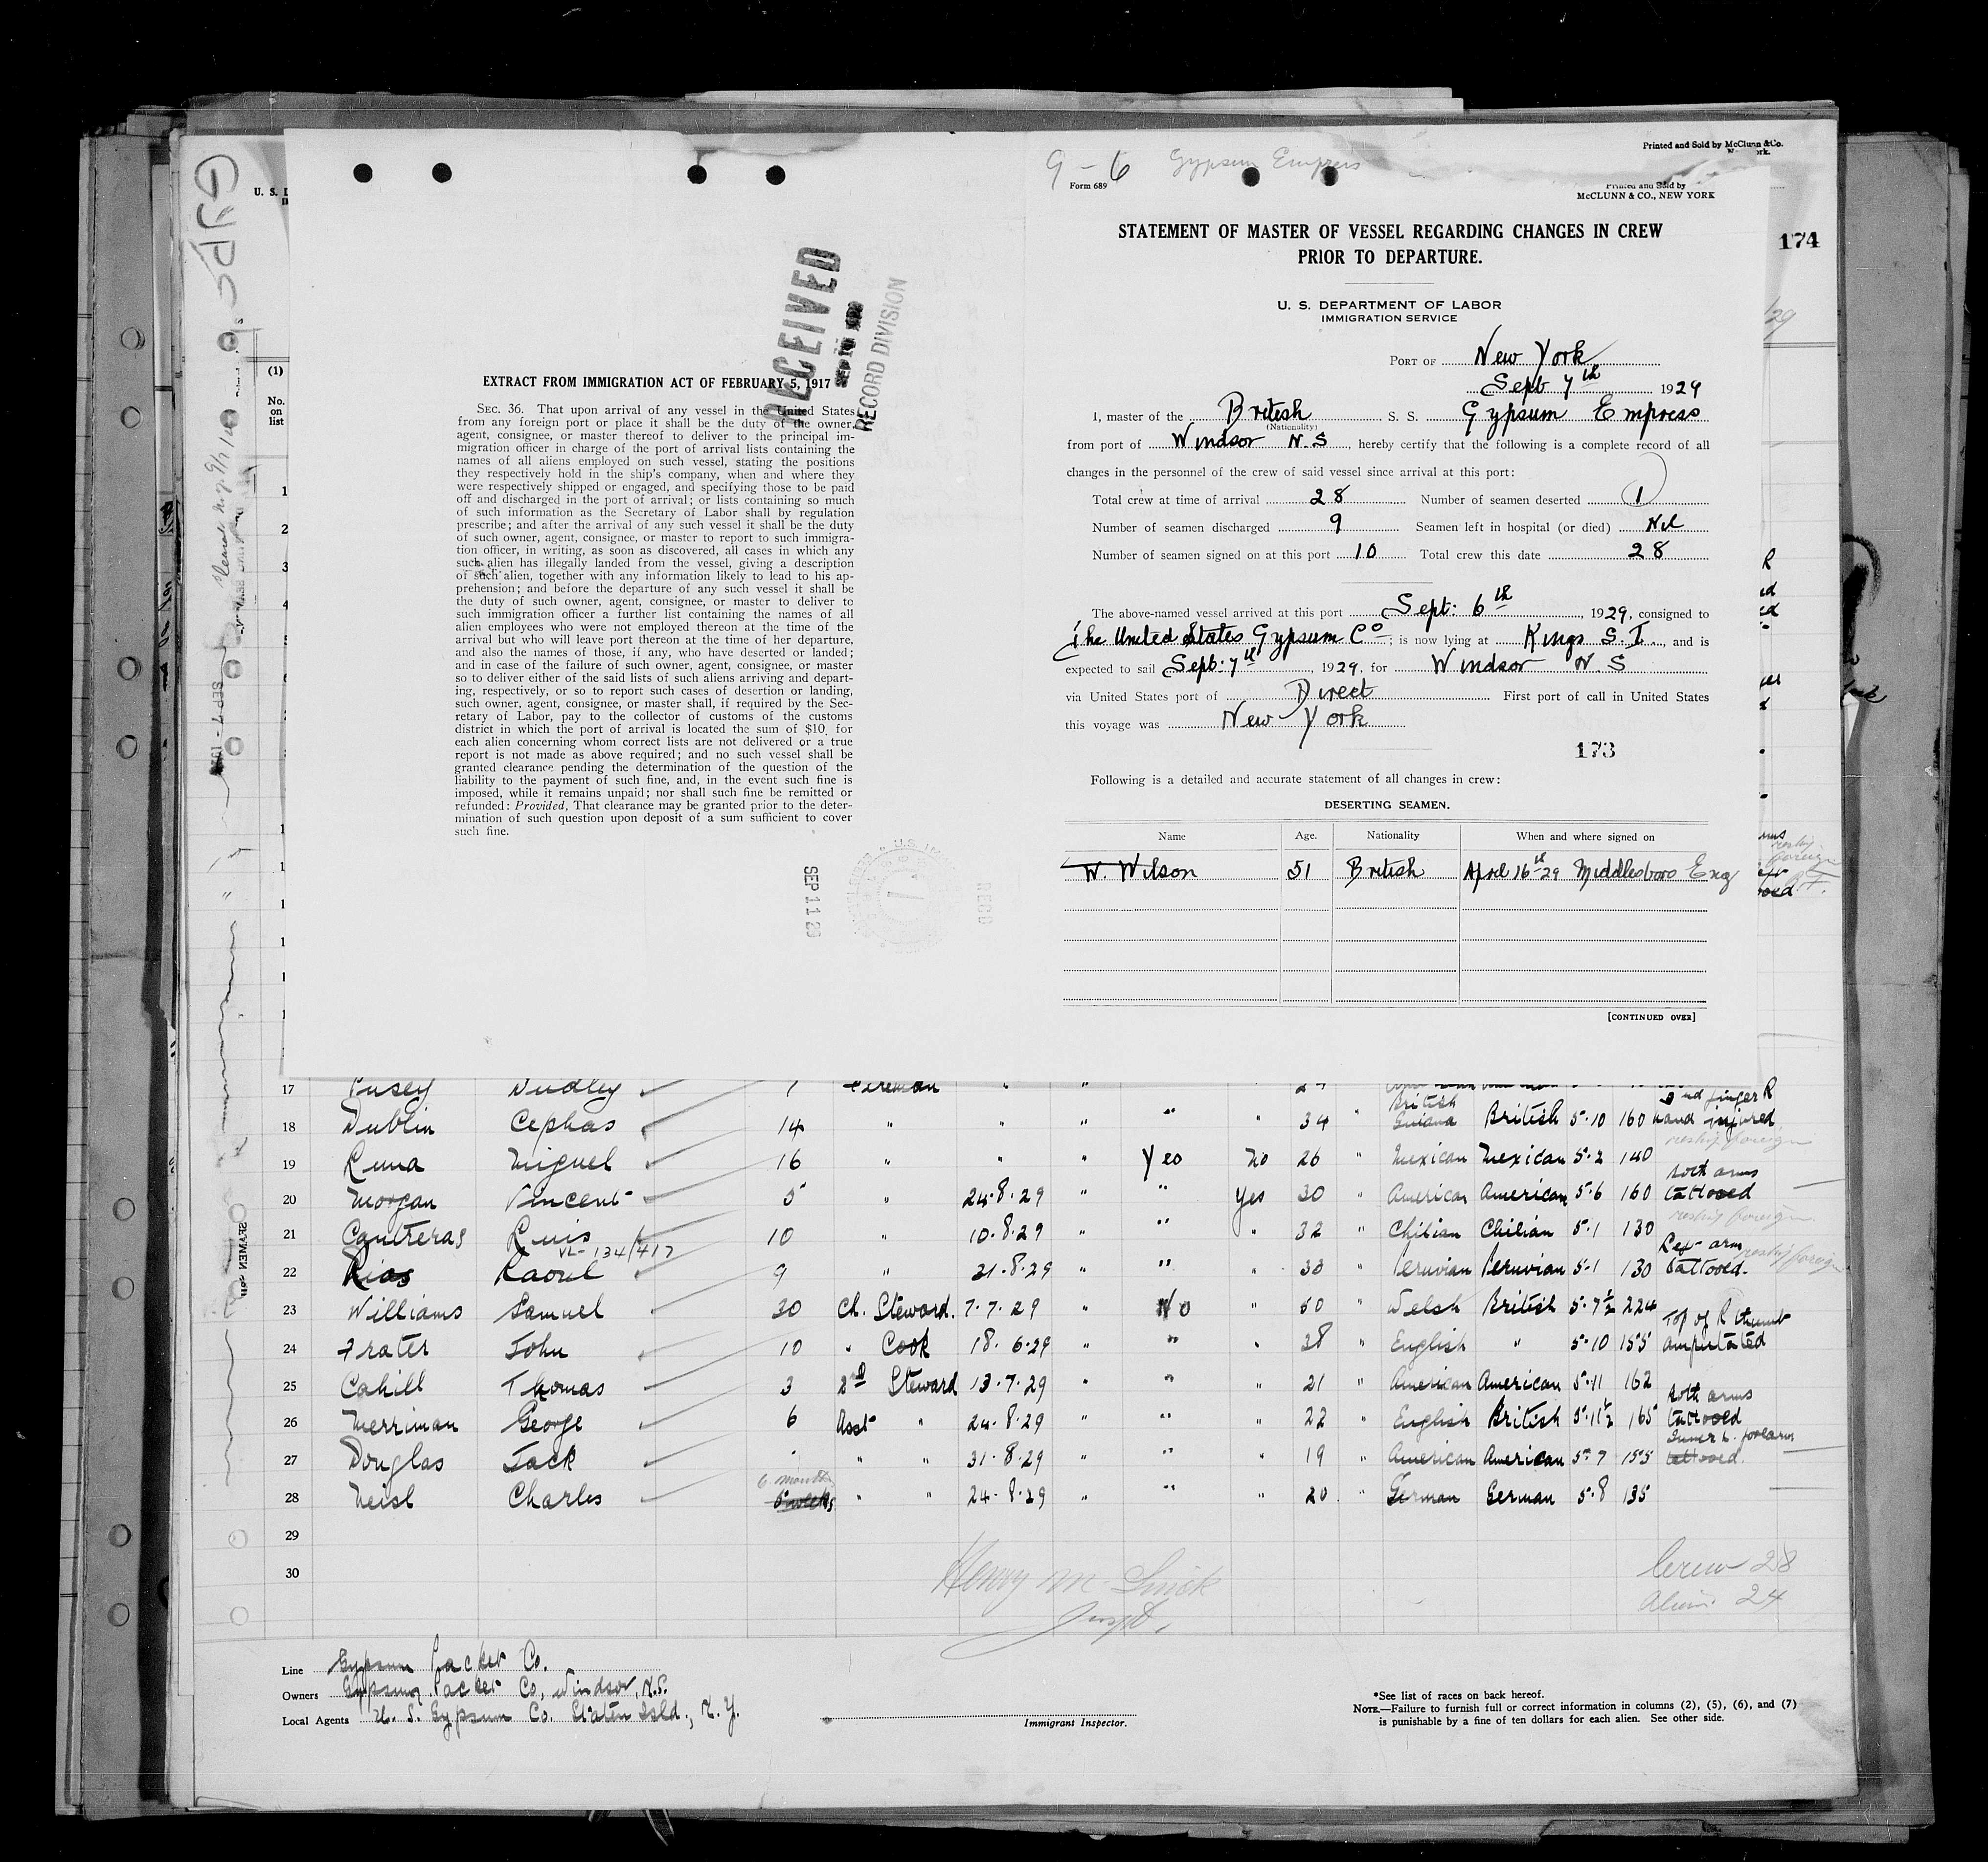 9 - 6 Gypsum Empress
Printed and Sold by McClunn & Co.
Form 689
Printed and Sold by
McCLUNN & CO., NEW YORK
STATEMENT OF MASTER OF VESSEL REGARDING CHANGES IN CREW
PRIOR TO DEPARTURE.
174
U. S. DEPARTMENT OF LABOR
IMMIGRATION SERVICE
PORT OF New York
Sept 7th 1929
I, master of the British S. S. Gypsum Empress
(Nationality)
from port of Windsor N.S, hereby certify that the following is a complete record of all
changes in the personnel of the crew of said vessel since arrival at this port:
Total crew at time of arrival 28 Number of seamen deserted 1
Number of seamen discharged 9 Seamen left in hospital (or died) Nil
Number of seamen signed on at this port 10 Total crew this date 28
The above-named vessel arrived at this port Sept: 6th, 1929, consigned to
The United States Gypsum Co; is now lying at Kings S.I., and is
expected to sail Sept: 7th, 1929, for Windsor N S
via United States port of Direct First port of call in United States
this voyage was New York
173
Following is a detailed and accurate statement of all changes in crew:
DESERTING SEAMEN.
Name Age. Nationality When and where signed on
W. Wilson 51 British April 16th 29 Middlesboro Eng
[CONTINUED OVER]
RECEIVED
RECORD DIVISION
EXTRACT FROM IMMIGRATION ACT OF FEBRUARY 5, 1917
SEC. 36. That upon arrival of any vessel in the United States
from any foreign port or place it shall be the duty of the owner,
agent, consignee, or master thereof to deliver to the principal im-
migration officer in charge of the port of arrival lists containing the
names of all aliens employed on such vessel, stating the positions
they respectively hold in the ship's company, when and where they
were respectively shipped or engaged, and specifying those to be paid
off and discharged in the port of arrival; or lists containing so much
of such information as the Secretary of Labor shall by regulation
prescribe; and after the arrival of any such vessel it shall be the duty
of such owner, agent, consignee, or master to report to such immigra-
tion officer, in writing, as soon as discovered, all cases in which any
such alien has illegally landed from the vessel, giving a description
of such alien, together with any information likely to lead to his ap-
prehension; and before the departure of any such vessel it shall be
the duty of such owner, agent, consignee, or master to deliver to
such immigration officer a further list containing the names of all
alien employees who were not employed thereon at the time of the
arrival but who will leave port thereon at the time of her departure,
and also the names of those, if any, who have deserted or landed;
and in case of the failure of such owner, agent, consignee, or master
so to deliver either of the said lists of such aliens arriving and depart-
ing, respectively, or so to report such cases of desertion or landing,
such owner, agent, consignee, or master shall, if required by the Sec-
retary of Labor, pay to the collector of customs of the customs
district in which the port of arrival is located the sum of $10, for
each alien concerning whom correct lists are not delivered or a true
report is not made as above required; and no such vessel shall be
granted clearance pending the determination of the question of the
liability to the payment of such fine, and, in the event such fine is
imposed, while it remains unpaid; nor shall such fine be remitted or
refunded: Provided, That clearance may be granted prior to the deter-
mination of such question upon deposit of a sum sufficient to cover
such fine.
SEP 11 29
(1)
No.
on
list
17 Pusey Dudley 7 Fireman " "
18 Dublin Cephas 14 " " " " " 34 " British Guiana British 5·10 160 2nd finger R hand injured
19 Luna Miguel 16 " " " Yes No 26 " Mexican Mexican 5·2 140 reship foreign
20 Morgan Vincent 5 " 24·8·29 " " Yes 30 " American American 5·6 160 both arms tattooed
21 Contreras Luis 10 " 10·8·29 " " " 32 " Chilian Chilian 5·1 130 reship foreign
VL-134/417
22 Rias Raoul 9 " 31·8·29 " " " 33 " Peruvian Peruvian 5·1 130 Left arm tattooed. reship foreign
23 Williams Samuel 30 Ch. Steward. 7·7·29 " No " 60 " Welsh British 5·7½ 224
24 Frater John 10 " Cook 18·6·29 " " " 38 " English " 5·10 155 Top of R thumb amputated
25 Cahill Thomas 3 2nd Steward 13·7·29 " " " 21 " American American 5·11 162
26 Merriman George 6 Asst " 24·8·29 " " " 22 " English British 5·11½ 165 both arms tattooed
27 Douglas Jack " " " 31·8·29 " " " 19 " American American 5·7 155 Inner L. forearm tattooed.
28 Meisl Charles 6 months 5 weeks " " 24·8·29 " " " 20 " German German 5·8 135
29
30
Henry M. Smick
Inspt.
Crew 28
Alien: 24
Line Gypsum Packet Co.
Owners Gypsum Packet Co, Windsor, N.S.
Local Agents U. S. Gypsum Co. Staten Isld., N.Y.
Immigrant Inspector.
*See list of races on back hereof.
NOTE.—Failure to furnish full or correct information in columns (2), (5), (6), and (7)
is punishable by a fine of ten dollars for each alien. See other side.